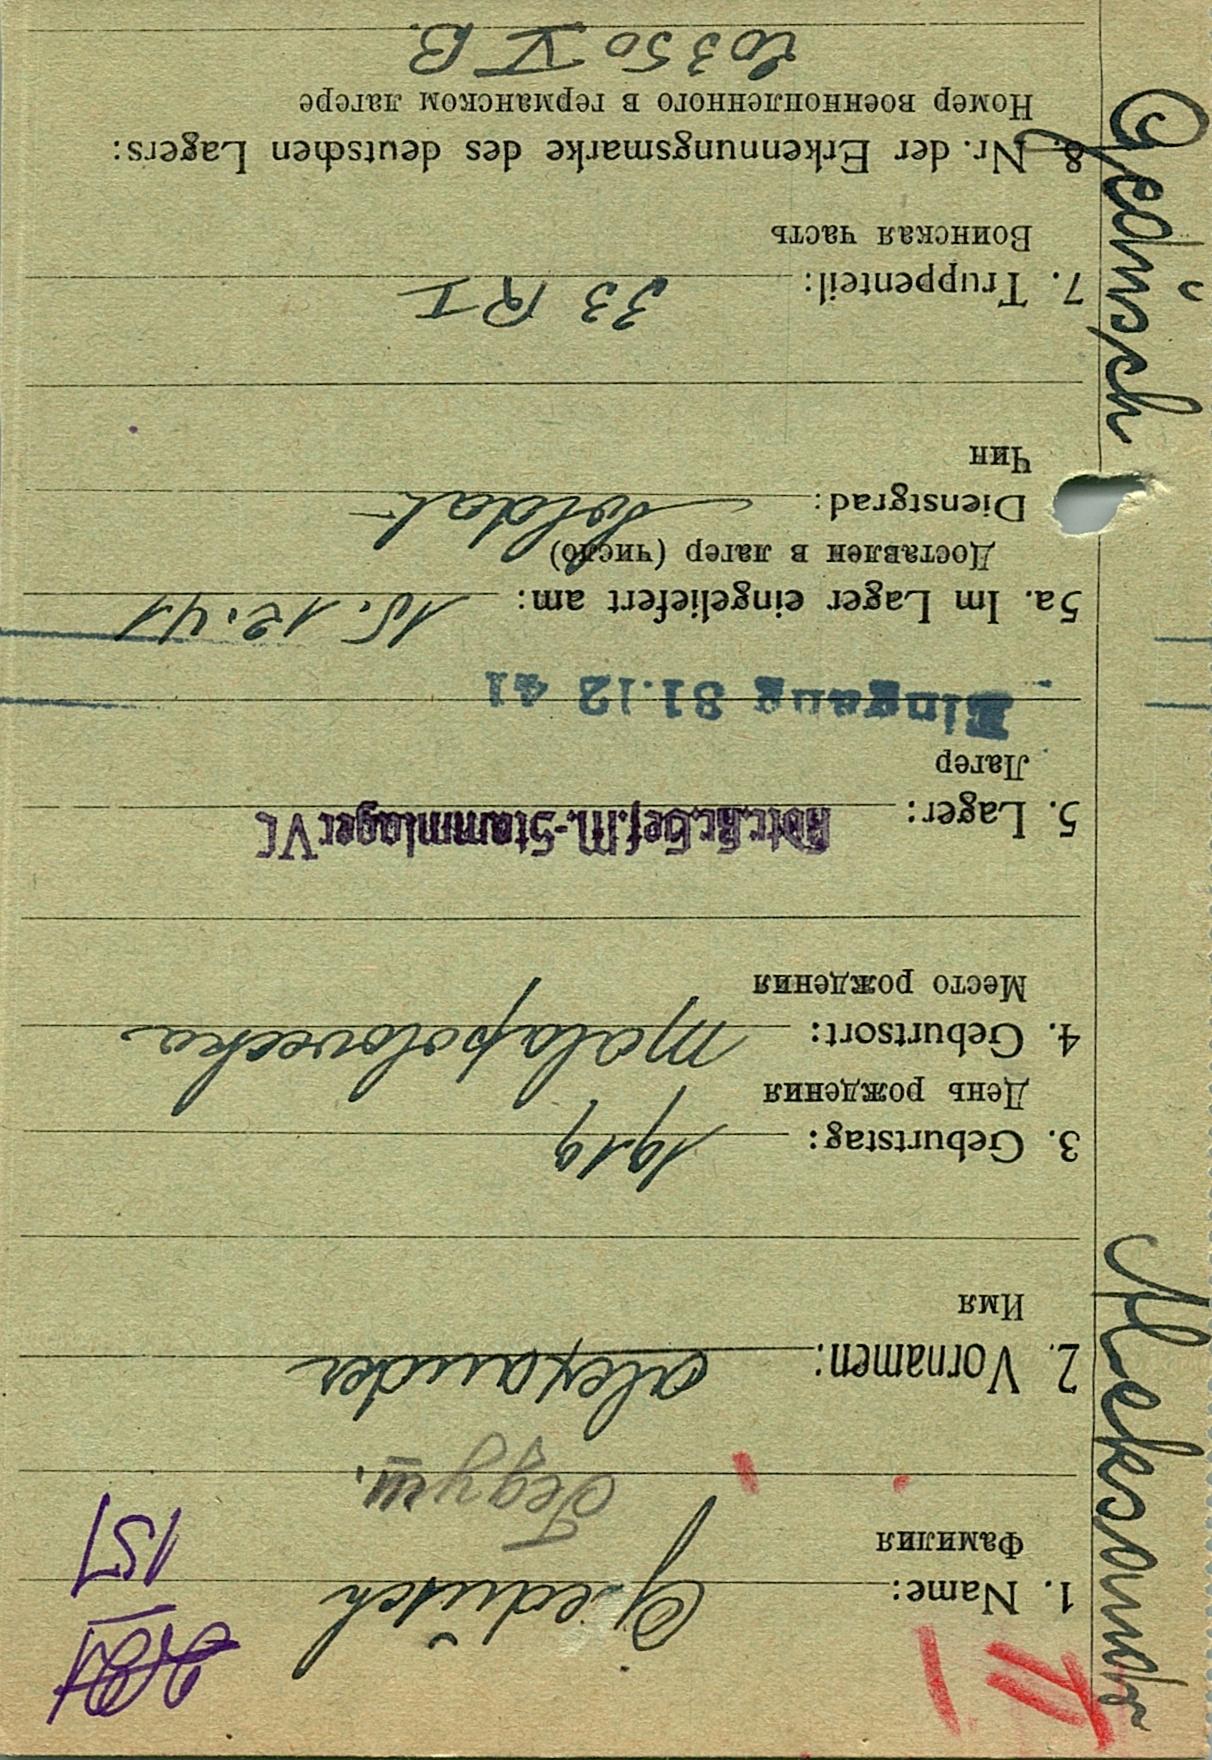 151
1. Name: Gedŭsch
Фамилия
Гедуш.
2. Vornamen: alexander
Имя
3. Geburtstag: 1919
День рождения
4. Geburtsort: Malapolovecka
Место рождения
5. Lager: Kdtr.Kr.Gef.M.-Stammlager VC
Лагер
Eingang 31.12 41
5a. Im Lager eingeliefert am: 15.12.41
Доставлен в лагер (число)
Dienstgrad: Soldat
Чин
7. Truppenteil: 33 RI
Воинская часть
8. Nr. der Erkennungsmarke des deutschen Lagers:
Номер военнопленного в германском лагере
20350 V B.
Gedŭsch Aleksandr